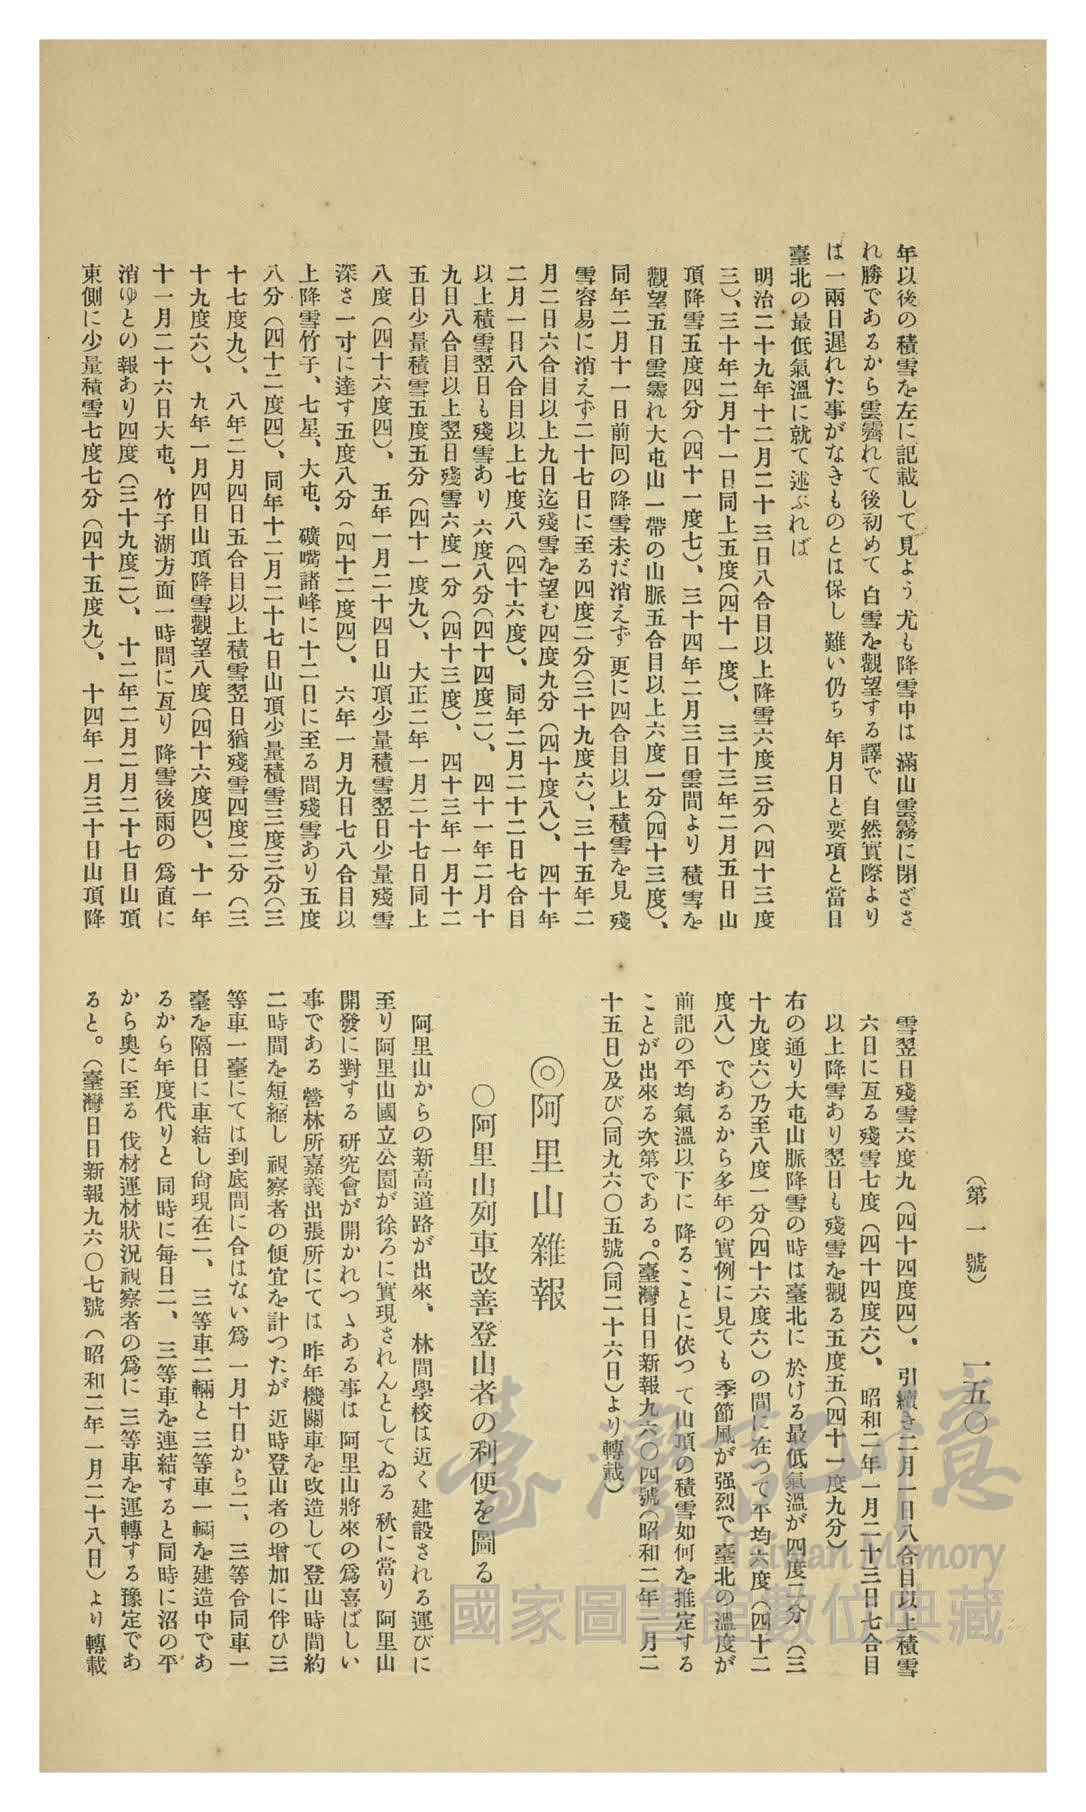 (第一號)
一五〇
年以後の積雪を左に記載して見よう尤も降雪中は滿山雲霧に閉ざさ
れ勝であるから雲霽れて後初めて白雪を觀望する譯で自然實際より
は一兩日遲れた事がなきものとは保し難い仍ち年月日と要項と當日
臺北の最低氣溫に就て述ぶれば
明治二十九年十二月二十三日八合目以上降雪六度三分(四十三度
三)、三十年二月十一日同上五度(四十一度)、三十三年二月五日山
頂降雪五度四分(四十一度七)、三十四年二月三日雲間より積雪を
觀望五日雲霽れ大屯山一帶の山脈五合目以上六度一分(四十三度)、
同年二月十一日前回の降雪未だ消えず更に四合目以上積雪を見殘
雪容易に消えず二十七日に至る四度二分(三十九度六)、三十五年二
月二日六合目以上九日迄殘雪を望む四度九分(四十度八)、四十年
二月一日八合目以上七度八(四十六度)、同年二月二十二日七合目
以上積雪翌日も殘雪あり六度八分(四十四度二)、四十一年二月十
九日八合目以上翌日殘雪六度一分(四十三度)、四十三年一月十二
五日少量積雪五度五分(四十一度九)、大正二年一月二十七日同上
八度(四十六度四)、五年一月二十四日山頂少量積雪翌日少量殘雪
深さ一寸に達す五度八分(四十二度四)、六年一月九日七八合目以
上降雪竹子、七星、大屯、礦嘴諸峰に十二日に至る間殘雪あり五度
八分(四十二度四)、同年十二月二十七日山頂少量積雪三度三分(三
十七度九)、八年二月四日五合目以上積雪翌日猶殘雪四度二分(三
十九度六)、九年一月四日山頂降雪觀望八度(四十六度四)、十一年
十一月二十六日大屯、竹子湖方面一時間に亙り降雪後雨の爲直に
消ゆとの報あり四度(三十九度二)、十二年二月二十七日山頂
東側に少量積雪七度七分(四十五度九)、十四年一月三十日山頂降
雪翌日殘雪六度九(四十四度四)、引續き二月一日八合目以上積雪
六日に亙る殘雪七度(四十四度六)、昭和二年一月二十三日七合目
以上降雪あり翌日も殘雪を觀る五度五(四十一度九分)
右の通り大屯山脈降雪の時は臺北に於ける最低氣溫が四度二分(三
十九度六)乃至八度一分(四十六度六)の間に在つて平均六度(四十二
度八)であるから多年の實例に見ても季節風が强烈で臺北の溫度が
前記の平均氣溫以下に降ることに依つて山頂の積雪如何を推定する
ことが出來る次第である。(臺灣日日新報九六〇四號(昭和二年一月二
十五日)及び(同九六〇五號(同二十六日)より轉載)
◎阿里山雜報
〇阿里山列車改善登山者の利便を圖る
阿里山からの新高道路が出來、林間學校は近く建設される運びに
至り阿里山國立公園が徐ろに實現されんとしてゐる秋に當り阿里山
開發に對する研究會が開かれつゝある事は阿里山將來の爲喜ばしい
事である營林所嘉義出張所にては昨年機關車を改造して登山時間約
二時間を短縮し視察者の便宜を計つたが近時登山者の增加に伴ひ三
等車一臺にては到底間に合はない爲一月十日から二、三等合同車一
臺を隔日に車結し尙現在二、三等車二輛と三等車一輛を建造中であ
るから年度代りと同時に每日二、三等車を連結すると同時に沼の平
から奧に至る伐材運材狀況視察者の爲に三等車を運轉する豫定であ
ると。(臺灣日日新報九六〇七號(昭和二年一月二十八日)より轉載
臺灣記憶
Taiwan Memory
國家圖書館數位典藏